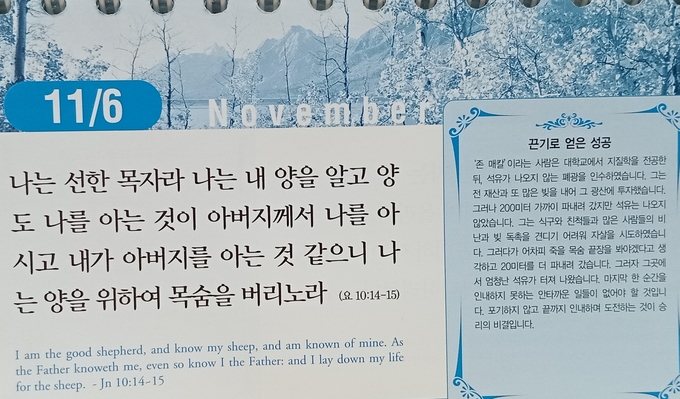 11/6
November
나는 선한 목자라 나는 내 양을 알고 양
도 나를 아는 것이 아버지께서 나를 아
시고 내가 아버지를 아는 것 같으니 나
는 양을 위하여 목숨을 버리노라 (요 10:14-15)
I am the good shepherd, and know my sheep, and am known of mine. As
the Father knoweth me, even so know I the Father: and I lay down my life
for the sheep. - Jn 10:14-15
끈기로 얻은 성공
'존 매칼'이라는 사람은 대학교에서 지질학을 전공한
뒤, 석유가 나오지 않는 폐광을 인수하였습니다. 그는
전 재산과 또 많은 빚을 내어 그 광산에 투자했습니다.
그러나 200미터 가까이 파내려 갔지만 석유는 나오지
않았습니다. 그는 식구와 친척들과 많은 사람들의 비
난과 빚 독촉을 견디기 어려워 자살을 시도하였습니
다. 그러다가 어차피 죽을 목숨 끝장을 봐야겠다고 생
각하고 20미터를 더 파내려 갔습니다. 그러자 그곳에
서 엄청난 석유가 터져 나왔습니다. 마지막 한 순간을
인내하지 못하는 안타까운 일들이 없어야 할 것입니
다. 포기하지 않고 끝까지 인내하며 도전하는 것이 승
리의 비결입니다.